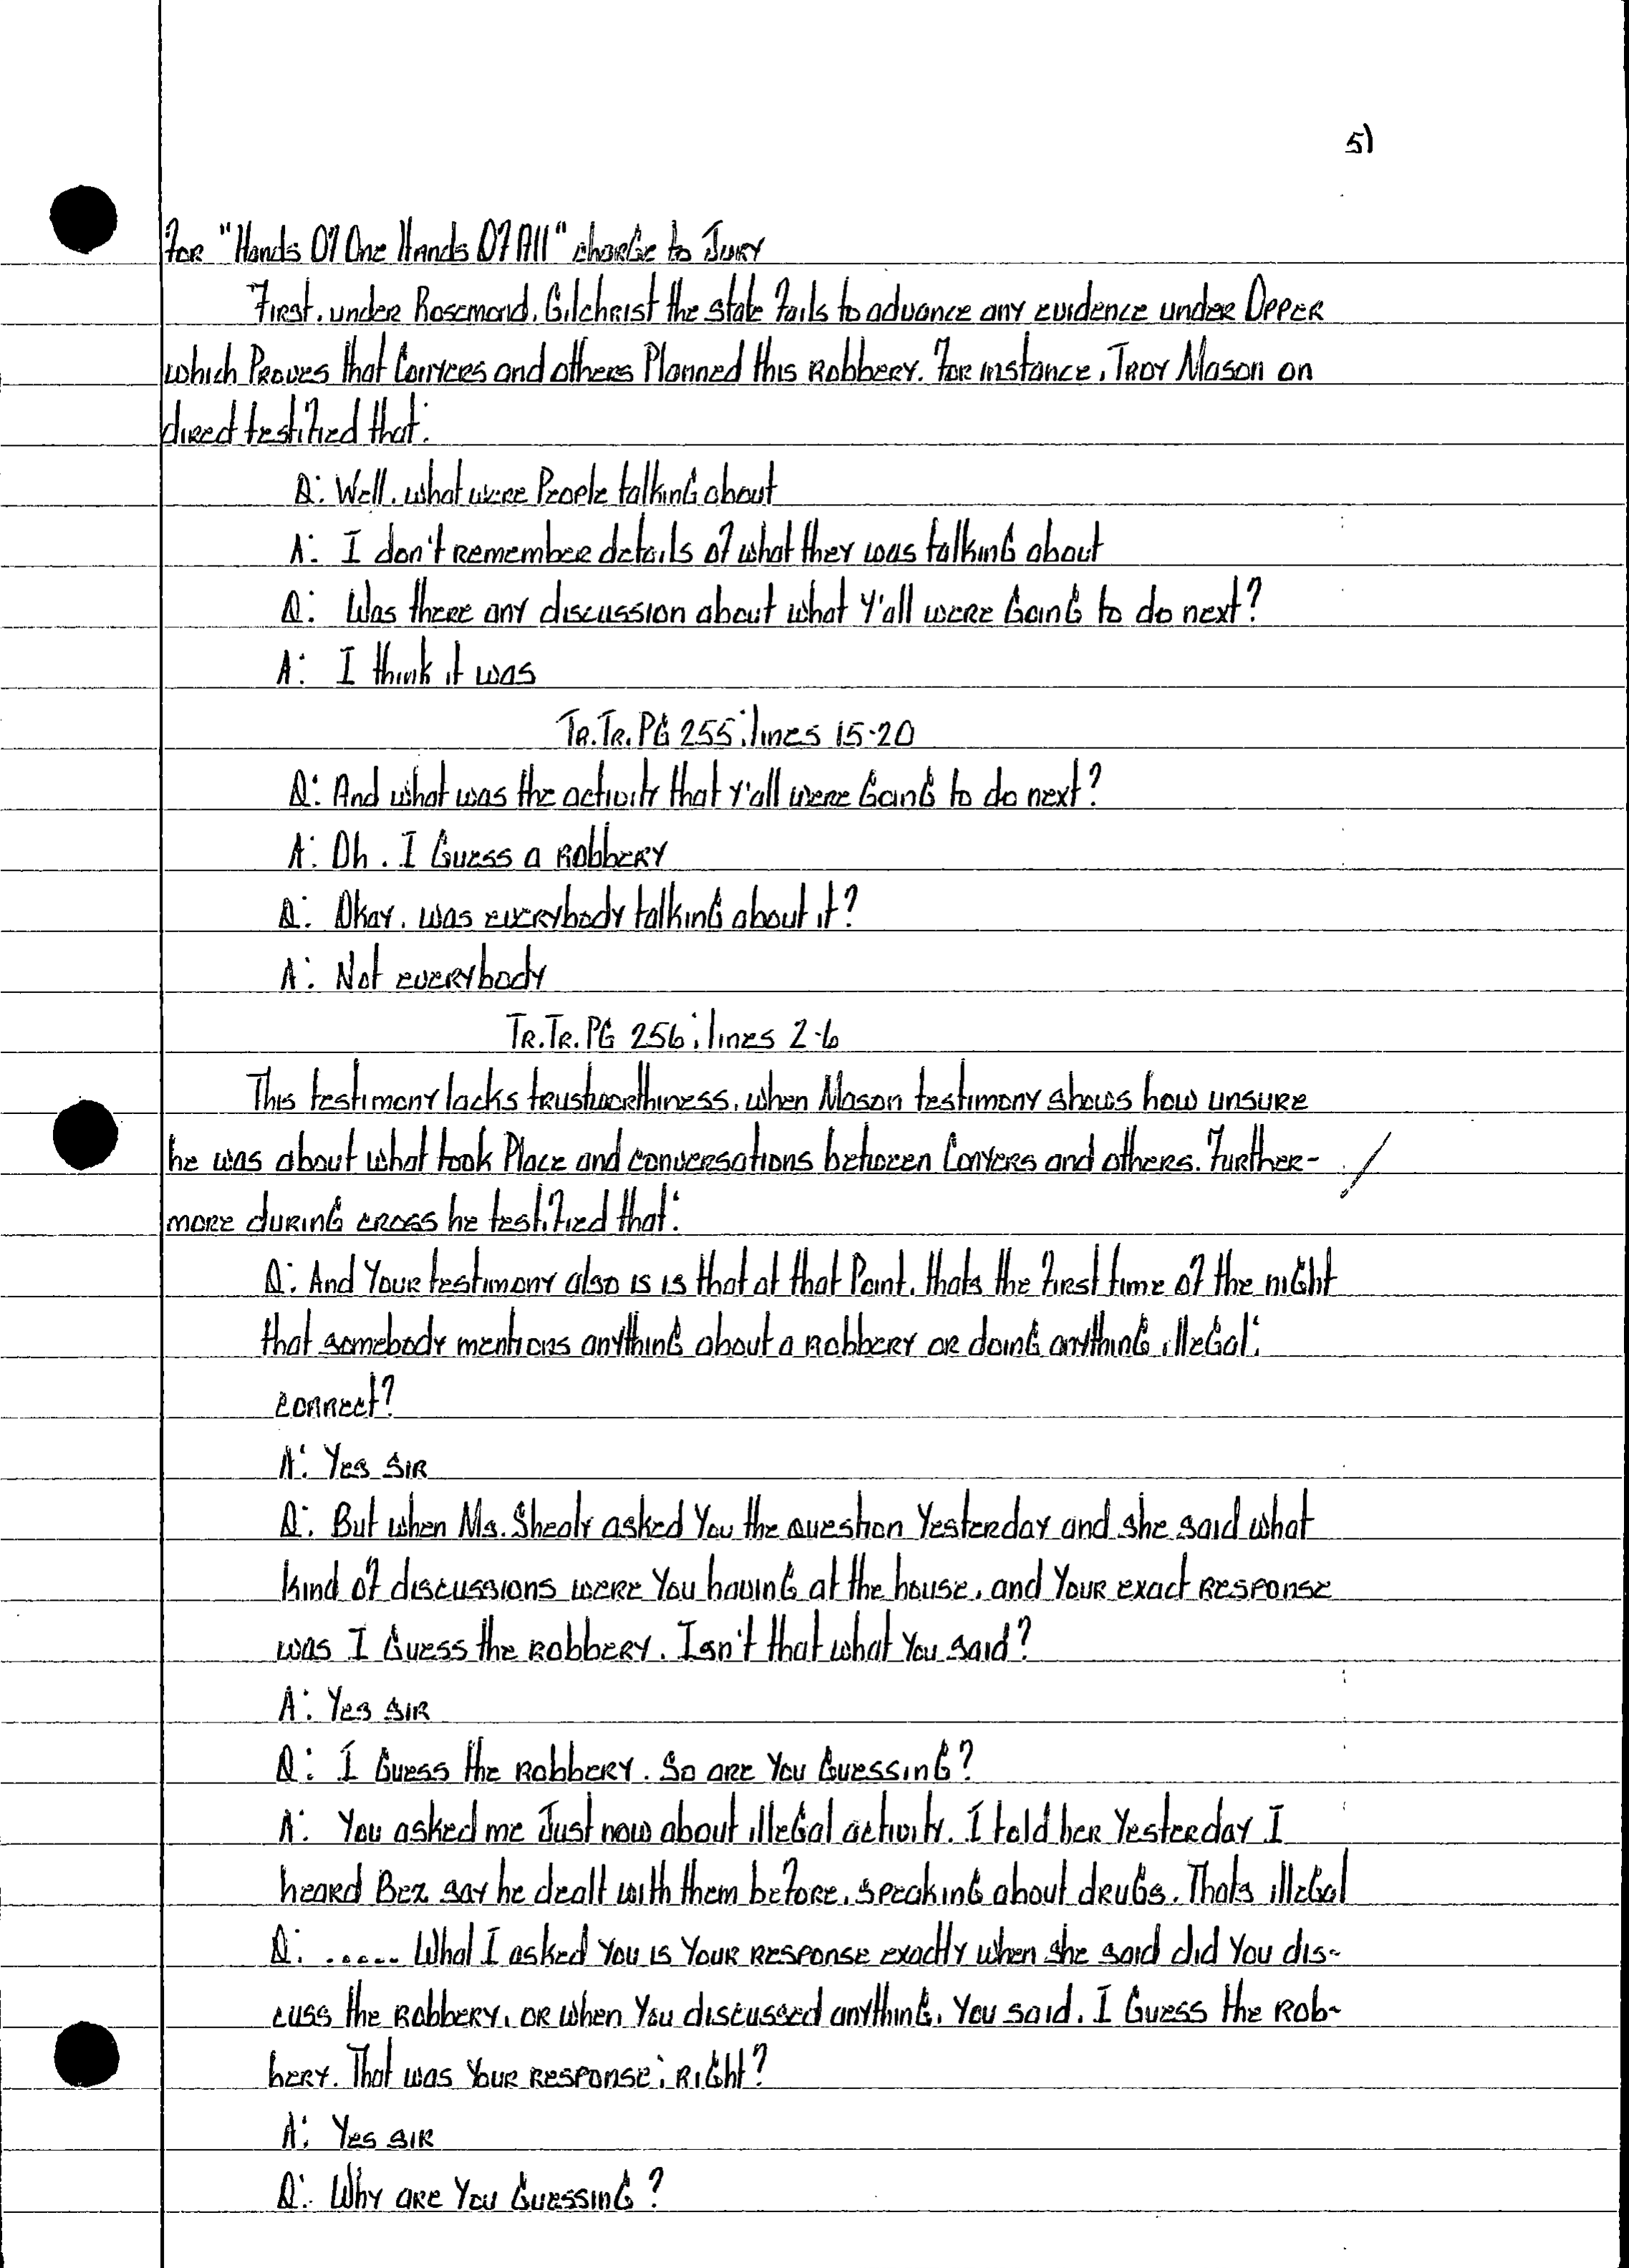 5)
for "Hands Of One Hands Of All" charge to Jury
First, under Rosemond, Gilchrist the state fails to advance any evidence under Opper
which Proves that Conyers and others Planned this Robbery. For instance, Troy Mason on
direct testified that:
Q: Well, what were People talking about
A: I don't remember details of what they was talking about
Q: Was there any discussion about what Y'all were Going to do next?
A: I think it was
TR.TR.PG 255; lines 15-20
Q: And what was the activity that Y'all were Going to do next?
A: Oh, I Guess a Robbery
Q: Okay, was everybody talking about it?
A: Not everybody
TR.TR.PG 256; lines 2-6
This testimony lacks trustworthiness, when Mason testimony shows how unsure
he was about what took Place and conversations between Conyers and others. Further-
more during cross he testified that:
Q: And Your testimony also is is that at that Point, thats the first time of the night
that somebody mentions anything about a Robbery or doing anything illegal;
correct?
A: Yes sir
Q: But when Ms. Shealy asked You the question Yesterday and she said what
kind of discussions were You having at the house, and Your exact response
was I Guess the Robbery. Isn't that what You said?
A: Yes sir
Q: I Guess the Robbery. So are You Guessing?
A: You asked me Just now about illegal activity. I told her Yesterday I
heard Bez say he dealt with them before, speaking about drugs. Thats illegal
Q: ...... What I asked You is Your response exactly when she said did You dis-
cuss the Robbery, or when You discussed anything, You said, I Guess the Rob-
bery. That was Your response; Right?
A: Yes sir
Q: Why are You Guessing?